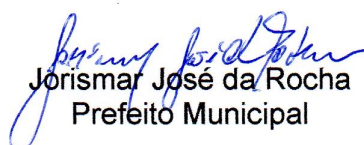 Jorismar José da Rocha
Prefeito Municipal